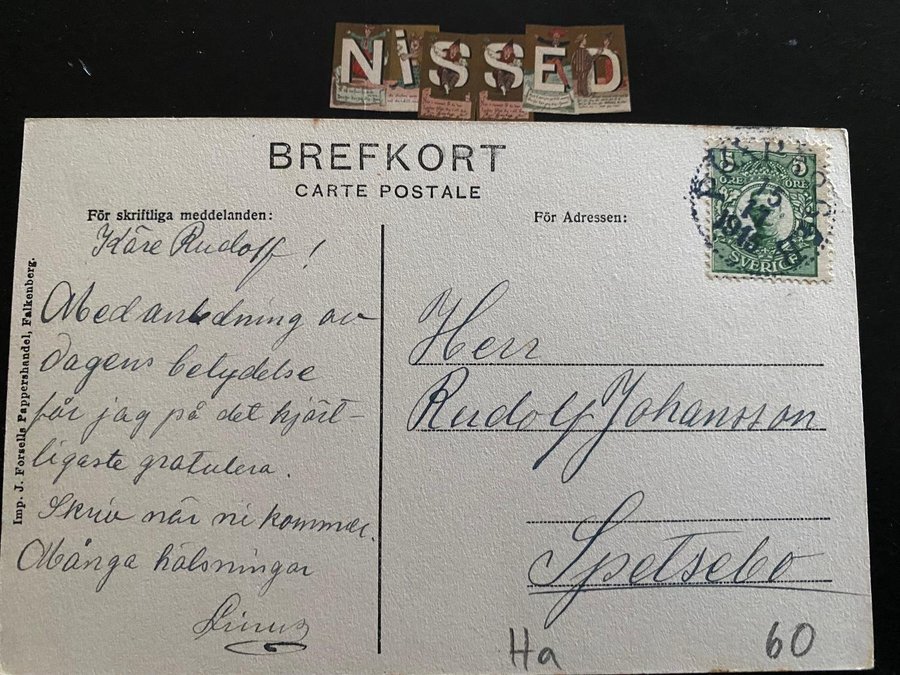 NiSSED
BREFKORT
CARTE POSTALE
För skriftliga meddelanden:
För Adressen:
Käre Rudolf!
Med anledning av
dagens betydelse
får jag på det hjärt-
ligaste gratulera.
Skriv när ni kommer.
Många hälsningar
Linus
Herr
Rudolf Johansson
Spetsebo
Imp. J. Forsells Pappershandel, Falkenberg.
5
ÖRE
SVERIGE
1915
Ha
60